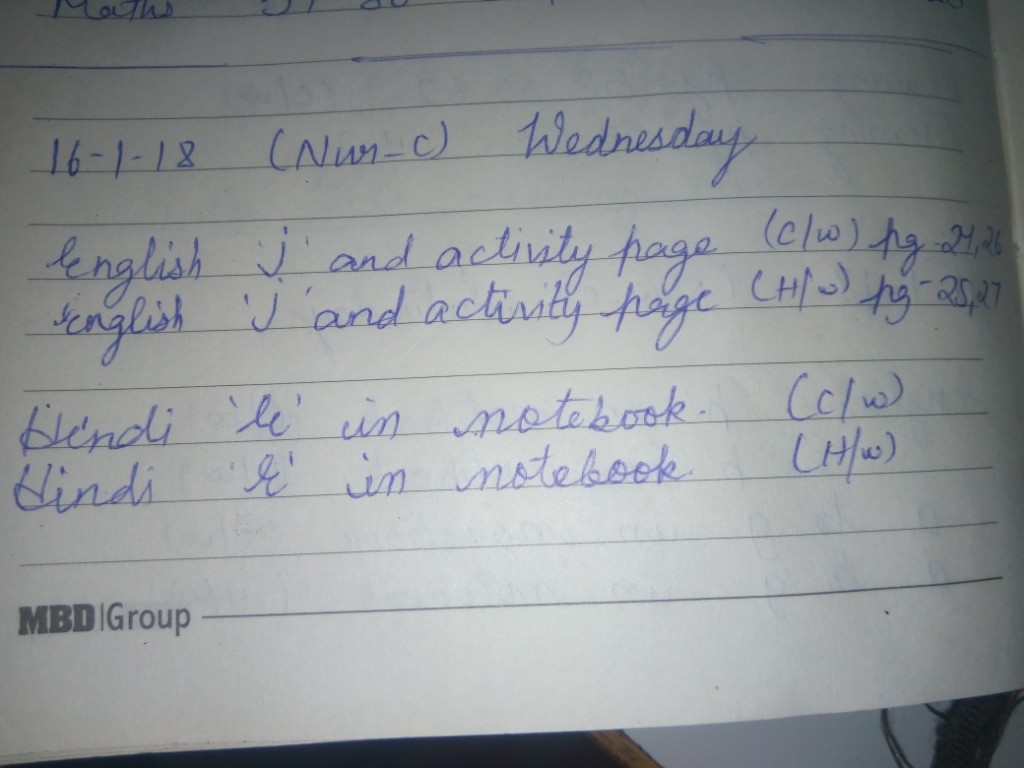 Maths
16-1-18 (Nur-C) Wednesday
English 'j' and activity page (C/w) pg-24,26
English 'j' and activity page (H/w) pg-25,27
Hindi in notebook. (C/w)
Hindi in notebook. (H/w)
MBD|Group